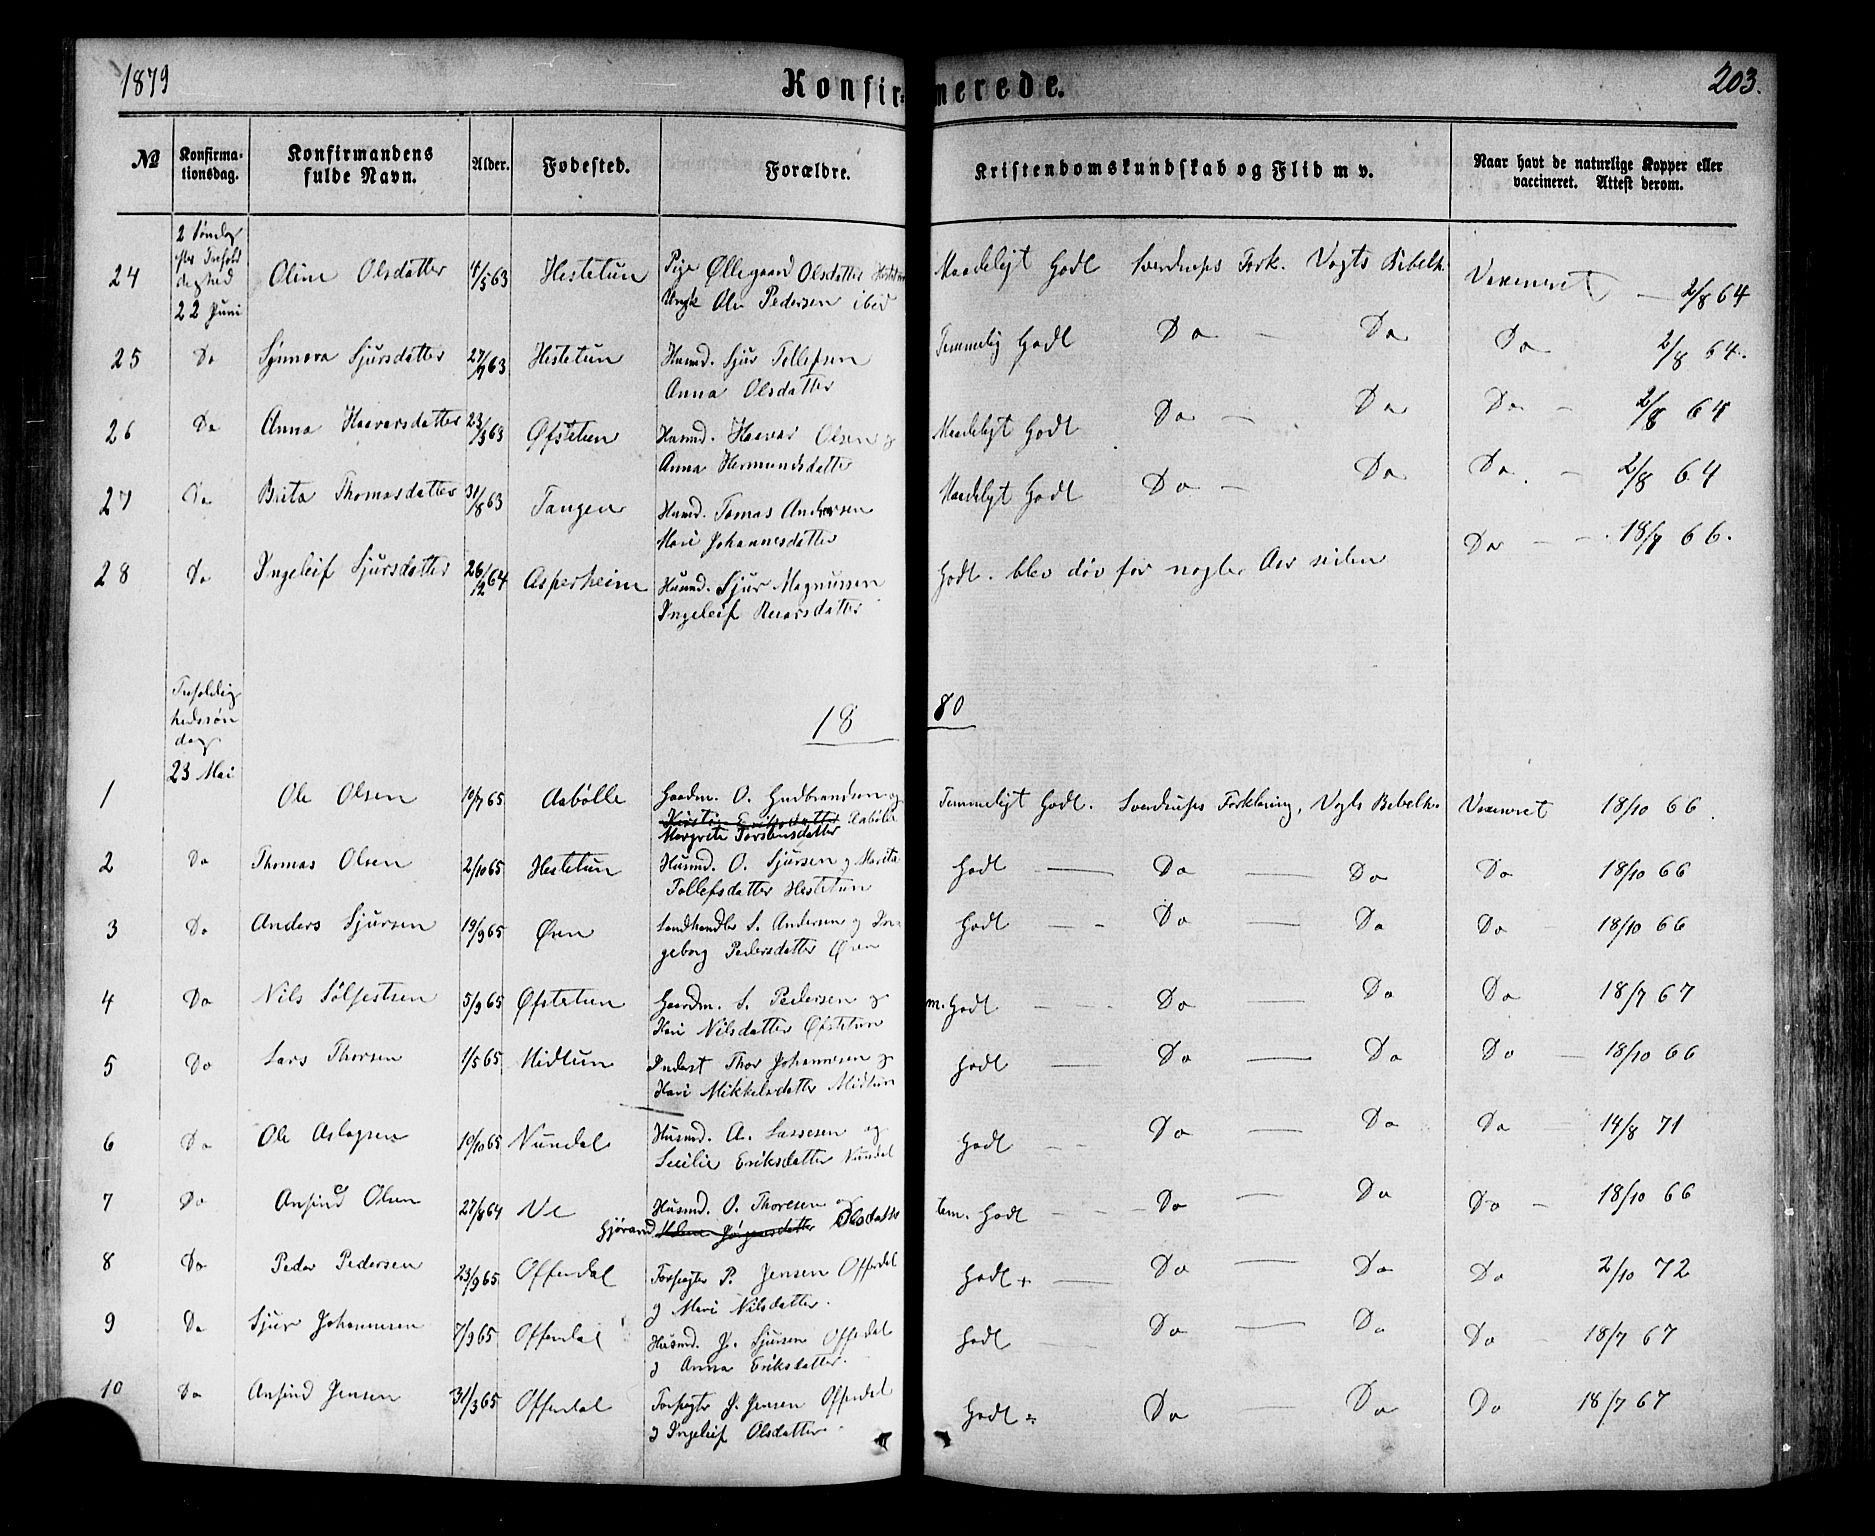 1879 Konfirmerede. 203.
№ Konfirmationsdag. Konfirmandens fulde Navn. Alder. Fødested. Forældre. Kristendomskundskab og Flid m v. Naar havt de naturlige Kopper eller vaccineret. Attest derom.
24 2 Søndag efter Trefoldighed 22 Juni Oline Olsdatter 4/5 63 Hestetun Pige Øllegaard Olsdatter Hestetun Maadeligt Godt Sverdrups Fork. Vogts Bibelh. Vaxineret — 2/8 64
Ungk Ole Pedersen ibid
25 Do Synneva Sjursdatter 27/7 63 Hestetun Husmd. Sjur Tollefsen Temmelig Godt Do — Do Do 2/8 64.
Anna Olsdatter
26 Do Anna Haavarsdatter 23/3 63 Øfstetun Husmd. Haavar Olsen og Maadeligt Godt Do — Do Do — 2/8 64
Anna Hermundsdatter
27 Do Brita Thomasdatter 31/8 63 Tangen Husmd. Tomas Andersen Maadeligt Godt Do — Do Do — 2/8 64
Mari Johannesdatter
28 Do Ingeleif Sjursdatter 26/12 64 Asperheim Husmd. Sjur Magnussen Godt. blev døv for nogle Aar siden Do — — 18/7 66.
Ingeleif Iversdatter
1880
1 Trefoldighedssøndag 23 Mai Ole Olsen 10/7 65 Aabølle Gaardm. O. Gudbrandsen og Temmeligt Godt. Sverdrups Forklaring, Vogts Bibelh. Vaxineret 18/10 66.
Aabølle
Margrete Torstensdatter
2 Do Thomas Olsen 2/10 65 Hestetun Husmd. O. Sjursen og Marita Godt — Do — Do Do 18/10 66
Tollefsdatter Hestetun
3 Do Anders Sjursen 19/9 65 Øren Landhandler S. Andersen og In- Godt — - Do — Do Do — 18/10 66
geborg Pedersdatter Øren
4 Do Nils Sølfestsen 5/9 65 Øfstetun Gaardm. S. Pedersen og m. Godt — - Do — Do Do 18/7 67
Kari Nilsdatter Øfstetun
5 Do Lars Thorsen 1/5 65 Midtun Inderst Thor Johannesen og Godt — Do — Do Do — 18/10 66
Kari Mikkelsdatter Midtun
6 Do Ole Aslagsen 10/10 65 Nundal Husmd. A. Lassesen og Godt — Do — Do Do — 14/8 71
Secilie Eriksdatter Nundal
7 Do Ansind Olsen 27/8 64 Ve Husmd. O. Thoresen og tem. Godt — - - Do — Do Do — 18/10 66
Gjørand Helene Jørgensdatter Olsdatter
8 Do Peder Pedersen 23/9 65 Offerdal Forpagter P. Jensen Offerdal Godt + — Do — Do Do 2/10 72
og Mari Nilsdatter.
9 Do Sjur Johannesen 7/9 65 Offerdal Husmd. J. Sjursen Offerdal Godt — Do — Do Do — 18/7 67
og Anna Eriksdatter.
10 Do Ansind Jensen 31/3 65 Offerdal Forpagter J. Jensen Offerdal Godt Do — Do Do 18/7 67
og Ingeleif Olsdatter.